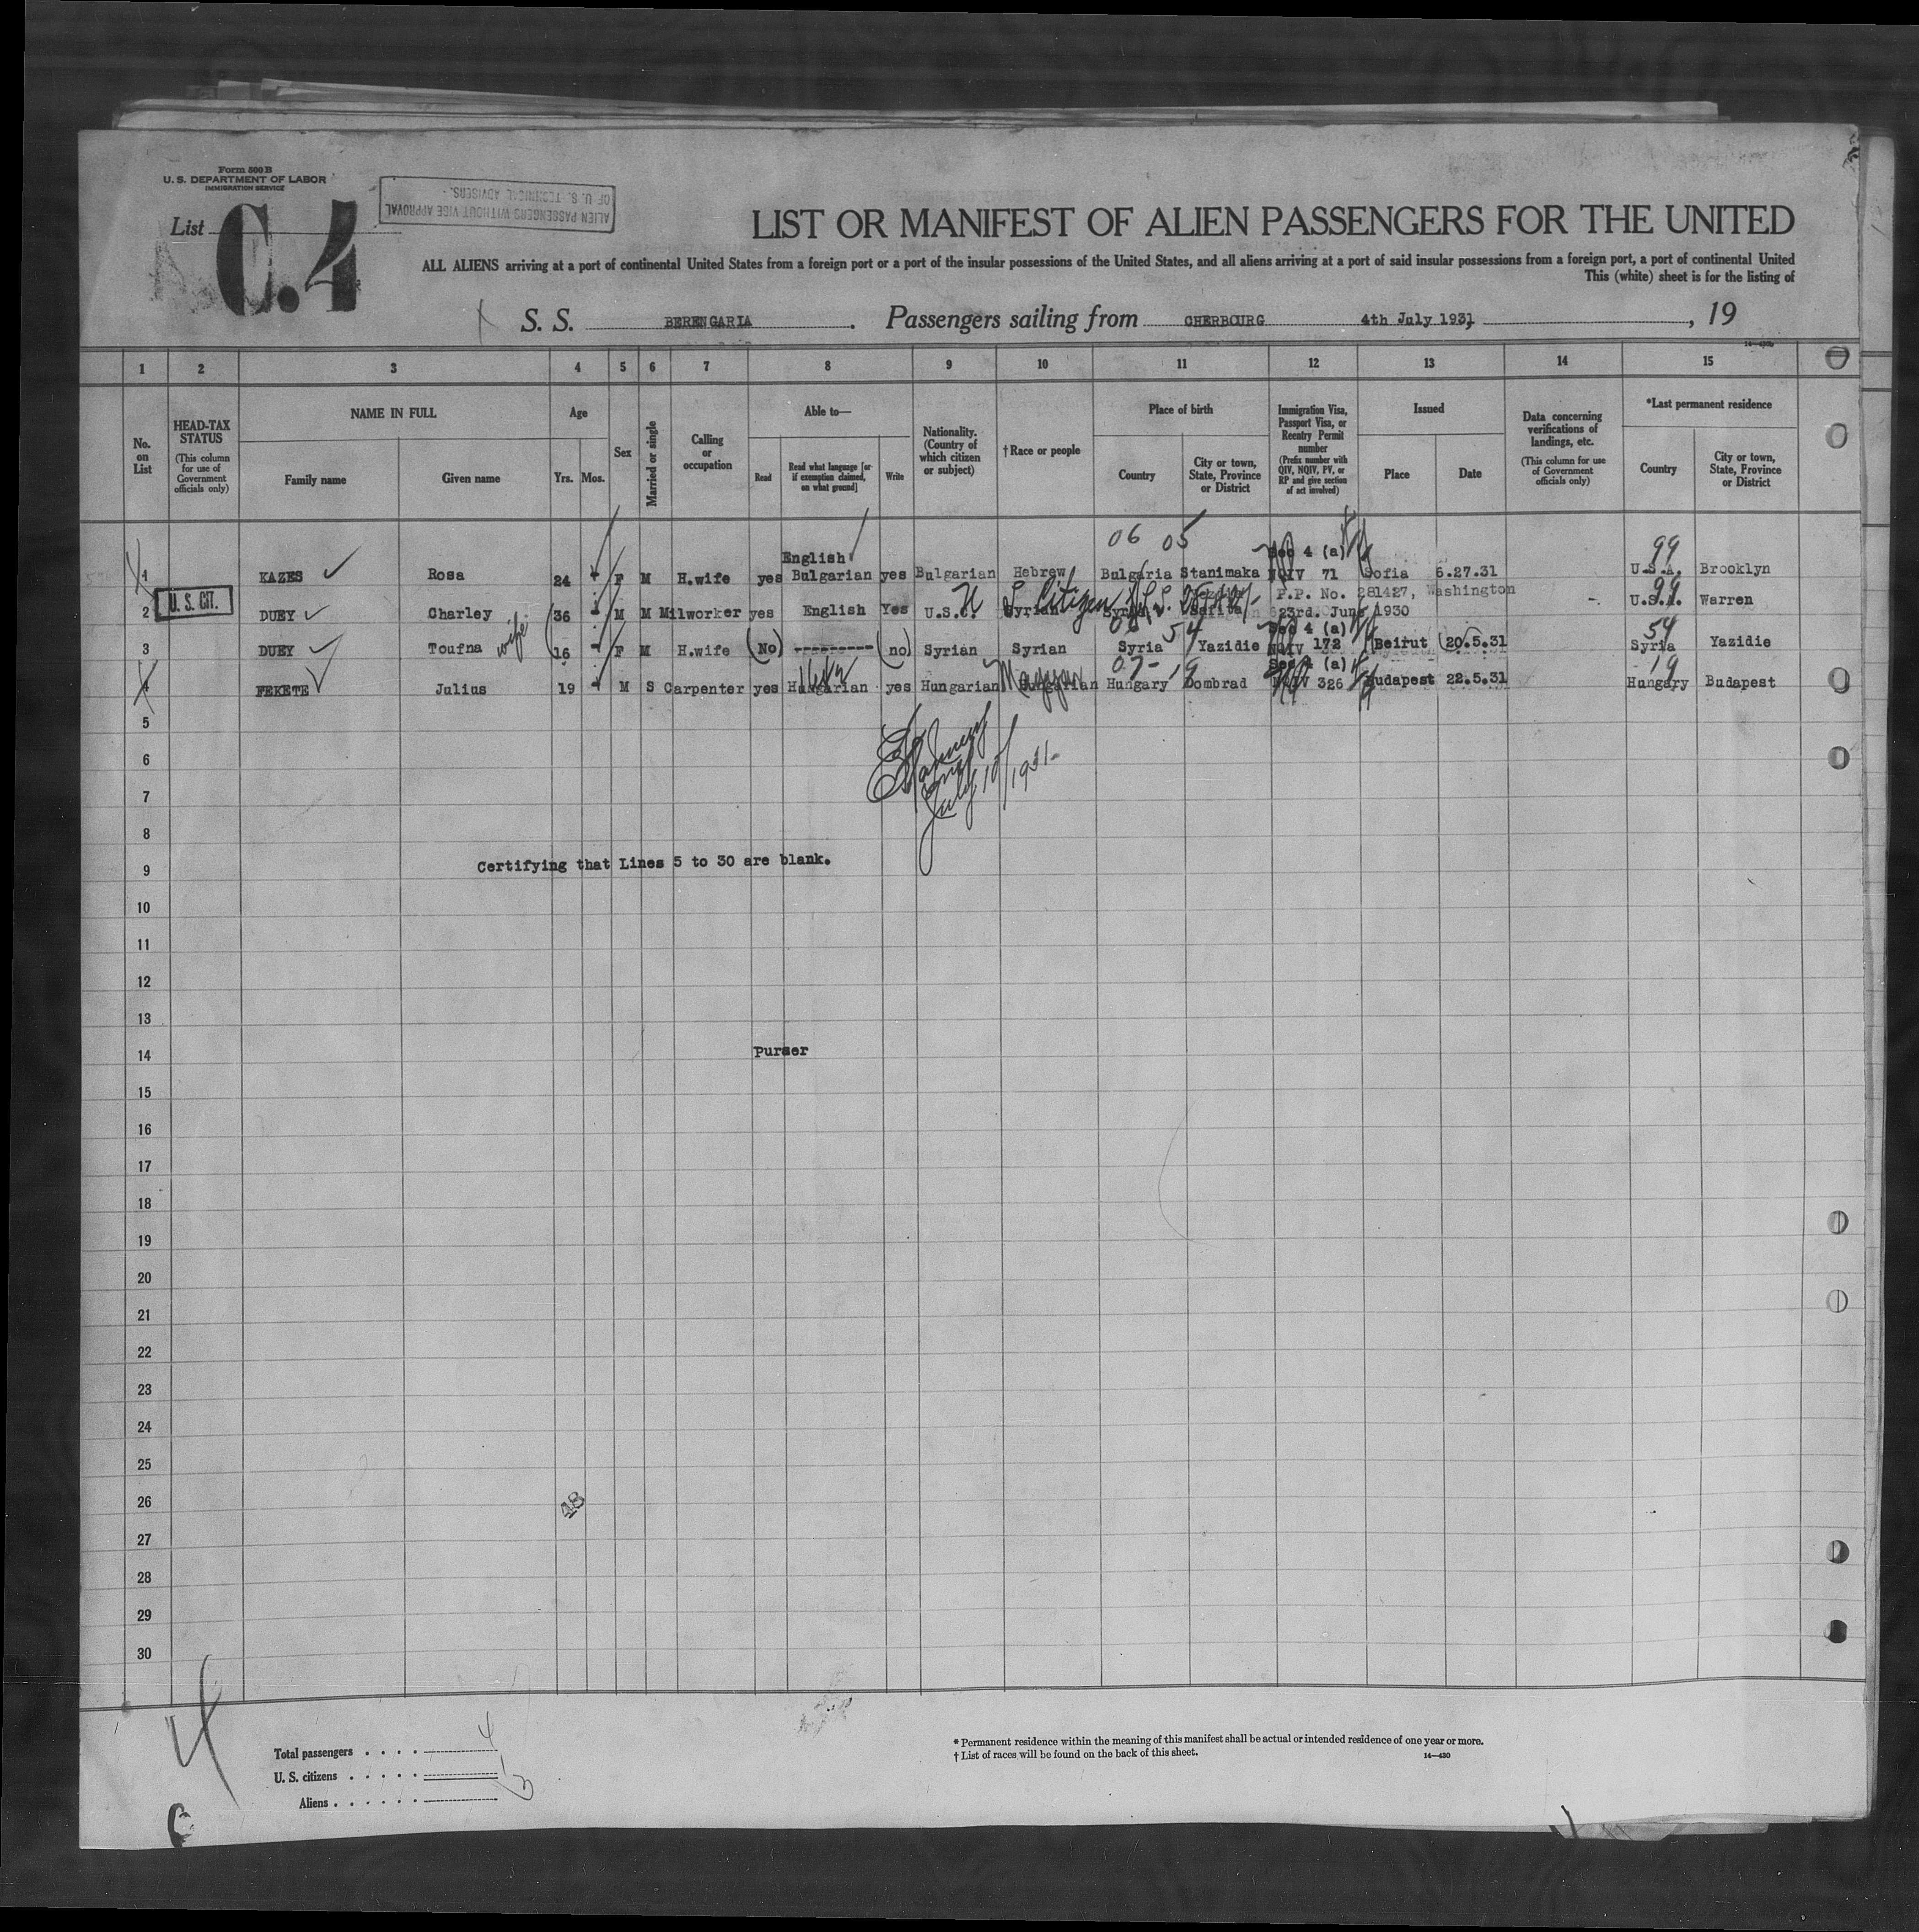 Form 500 B
U. S. DEPARTMENT OF LABOR
IMMIGRATION SERVICE
ALIEN PASSENGERS WITHOUT VISE APPROVAL
OF U. S. TECHNICAL ADVISERS.
List C.4
LIST OR MANIFEST OF ALIEN PASSENGERS FOR THE UNITED
ALL ALIENS arriving at a port of continental United States from a foreign port or a port of the insular possessions of the United States, and all aliens arriving at a port of said insular possessions from a foreign port, a port of continental United
This (white) sheet is for the listing of
S. S. BERENGARIA. Passengers sailing from CHERBOURG 4th July 1931, 19
1 2 3 4 5 6 7 8 9 10 11 12 13 14 15
No. on List
HEAD-TAX STATUS
(This column for use of Government officials only)
NAME IN FULL
Family name
Given name
Age
Yrs. Mos.
Sex
Married or single
Calling or occupation
Able to—
Read
Read what language [or if exemption claimed, on what ground]
Write
Nationality. (Country of which citizen or subject)
†Race or people
Place of birth
Country
City or town, State, Province or District
Immigration Visa, Passport Visa, or Reentry Permit number
(Prefix number with QIV, NQIV, PV, or RP and give section of act involved)
Issued
Place
Date
Data concerning verifications of landings, etc.
(This column for use of Government officials only)
*Last permanent residence
Country
City or town, State, Province or District
06 05 99
English Sec 4 (a)
1 KAZES Rosa 24 F M H.wife yes Bulgarian yes Bulgarian Hebrew Bulgaria Stanimaka NQIV 71 Sofia 6.27.31 U.S.A. Brooklyn
U. S. CIT.
U S Citizen P.P. No. 281427, Washington 99
2 DUEY Charley 36 M M Milworker yes English Yes U.S.C. Syrian Syria 23rd. June 1930 U.S.A. Warren
wife 06 54 Sec 4 (a) 54
3 DUEY Toufna 16 F M H.wife (No) --------- (no) Syrian Syrian Syria Yazidie NQIV 172 Beirut (20.5.31 Syria Yazidie
Magyar 07- 19 Sec 4 (a) 19
4 FEKETE Julius 19 M S Carpenter yes Hungarian yes Hungarian Hungarian Hungary Dombrad NQIV 326 Budapest 22.5.31 Hungary Budapest
5
6
July 10/1931-
7
8
9 Certifying that Lines 5 to 30 are blank.
10
11
12
13
14 Purser
15
16
17
18
19
20
21
22
23
24
25
26 48
27
28
29
30
4
Total passengers . . . . 4
U. S. citizens . . . . . 1
Aliens . . . . . . 3
* Permanent residence within the meaning of this manifest shall be actual or intended residence of one year or more.
† List of races will be found on the back of this sheet. 14—430